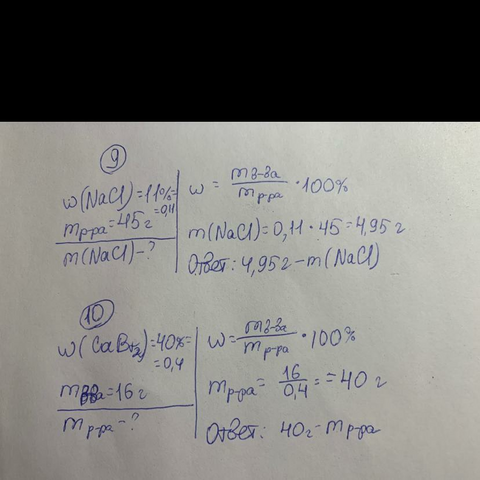 9
w(NaCl)=11%=
=0,11
mр-ра=45г
m(NaCl)-?
w = mв-ва/mр-ра · 100%
m(NaCl)=0,11·45=4,95г
Ответ: 4,95г-m(NaCl)
10
w(CaBr2)=40%=
=0,4
mв-ва=16г
mр-ра-?
w=mв-ва/mр-ра · 100%
mр-ра= 16/0,4 = =40г
Ответ: 40г-mр-ра